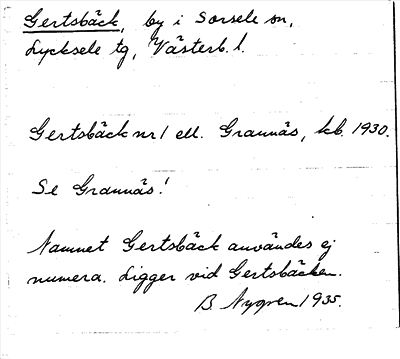 Gertsbäck, by i Sorsele sn,
Lycksele tg, Västerb. l.
Gertsbäck nr 1 ell. Grannäs, kb. 1930.
Se Grannäs!
Namnet Gertsbäck användes ej
numera. Ligger vid Gertsbäcken.
B. Nygren 1935.